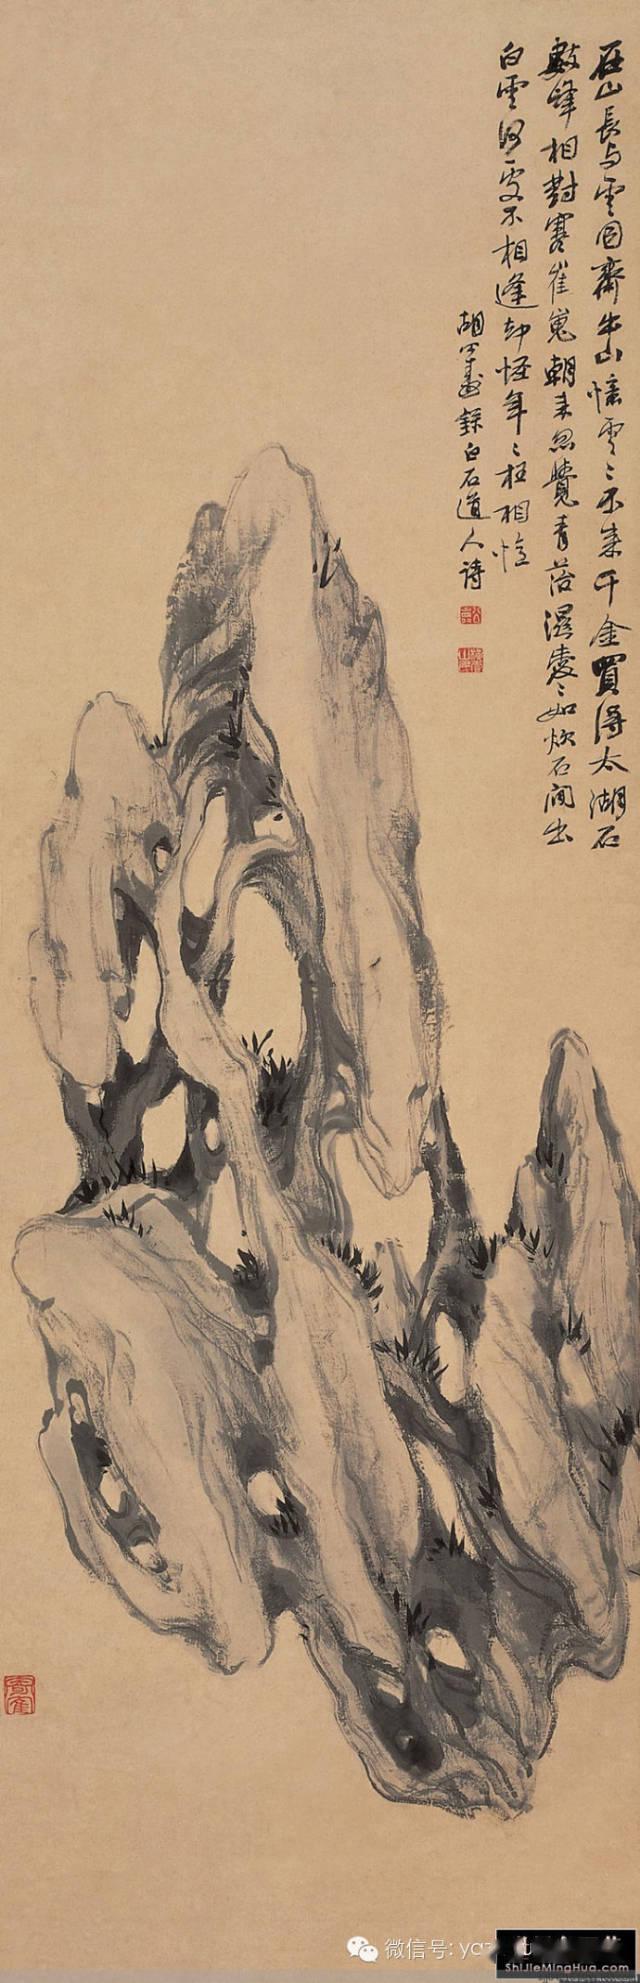 在山長与雲同齋出山憶雲〻不来千金買得太湖石
數峰相對寒崔嵬朝来忽覺青苔濕處〻如炊石间出
白雲何處不相逢却怪年〻枉相憶
胡公壽錄白石道人詩
微信号:
ShiJieMingHua.com